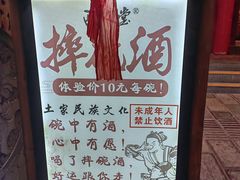 堂®
摔碗酒
体验价10元每碗!
土家民族文化
未成年人
禁止饮酒
碗中有酒,
心中有愿!
喝了摔碗酒
好运跟你走!